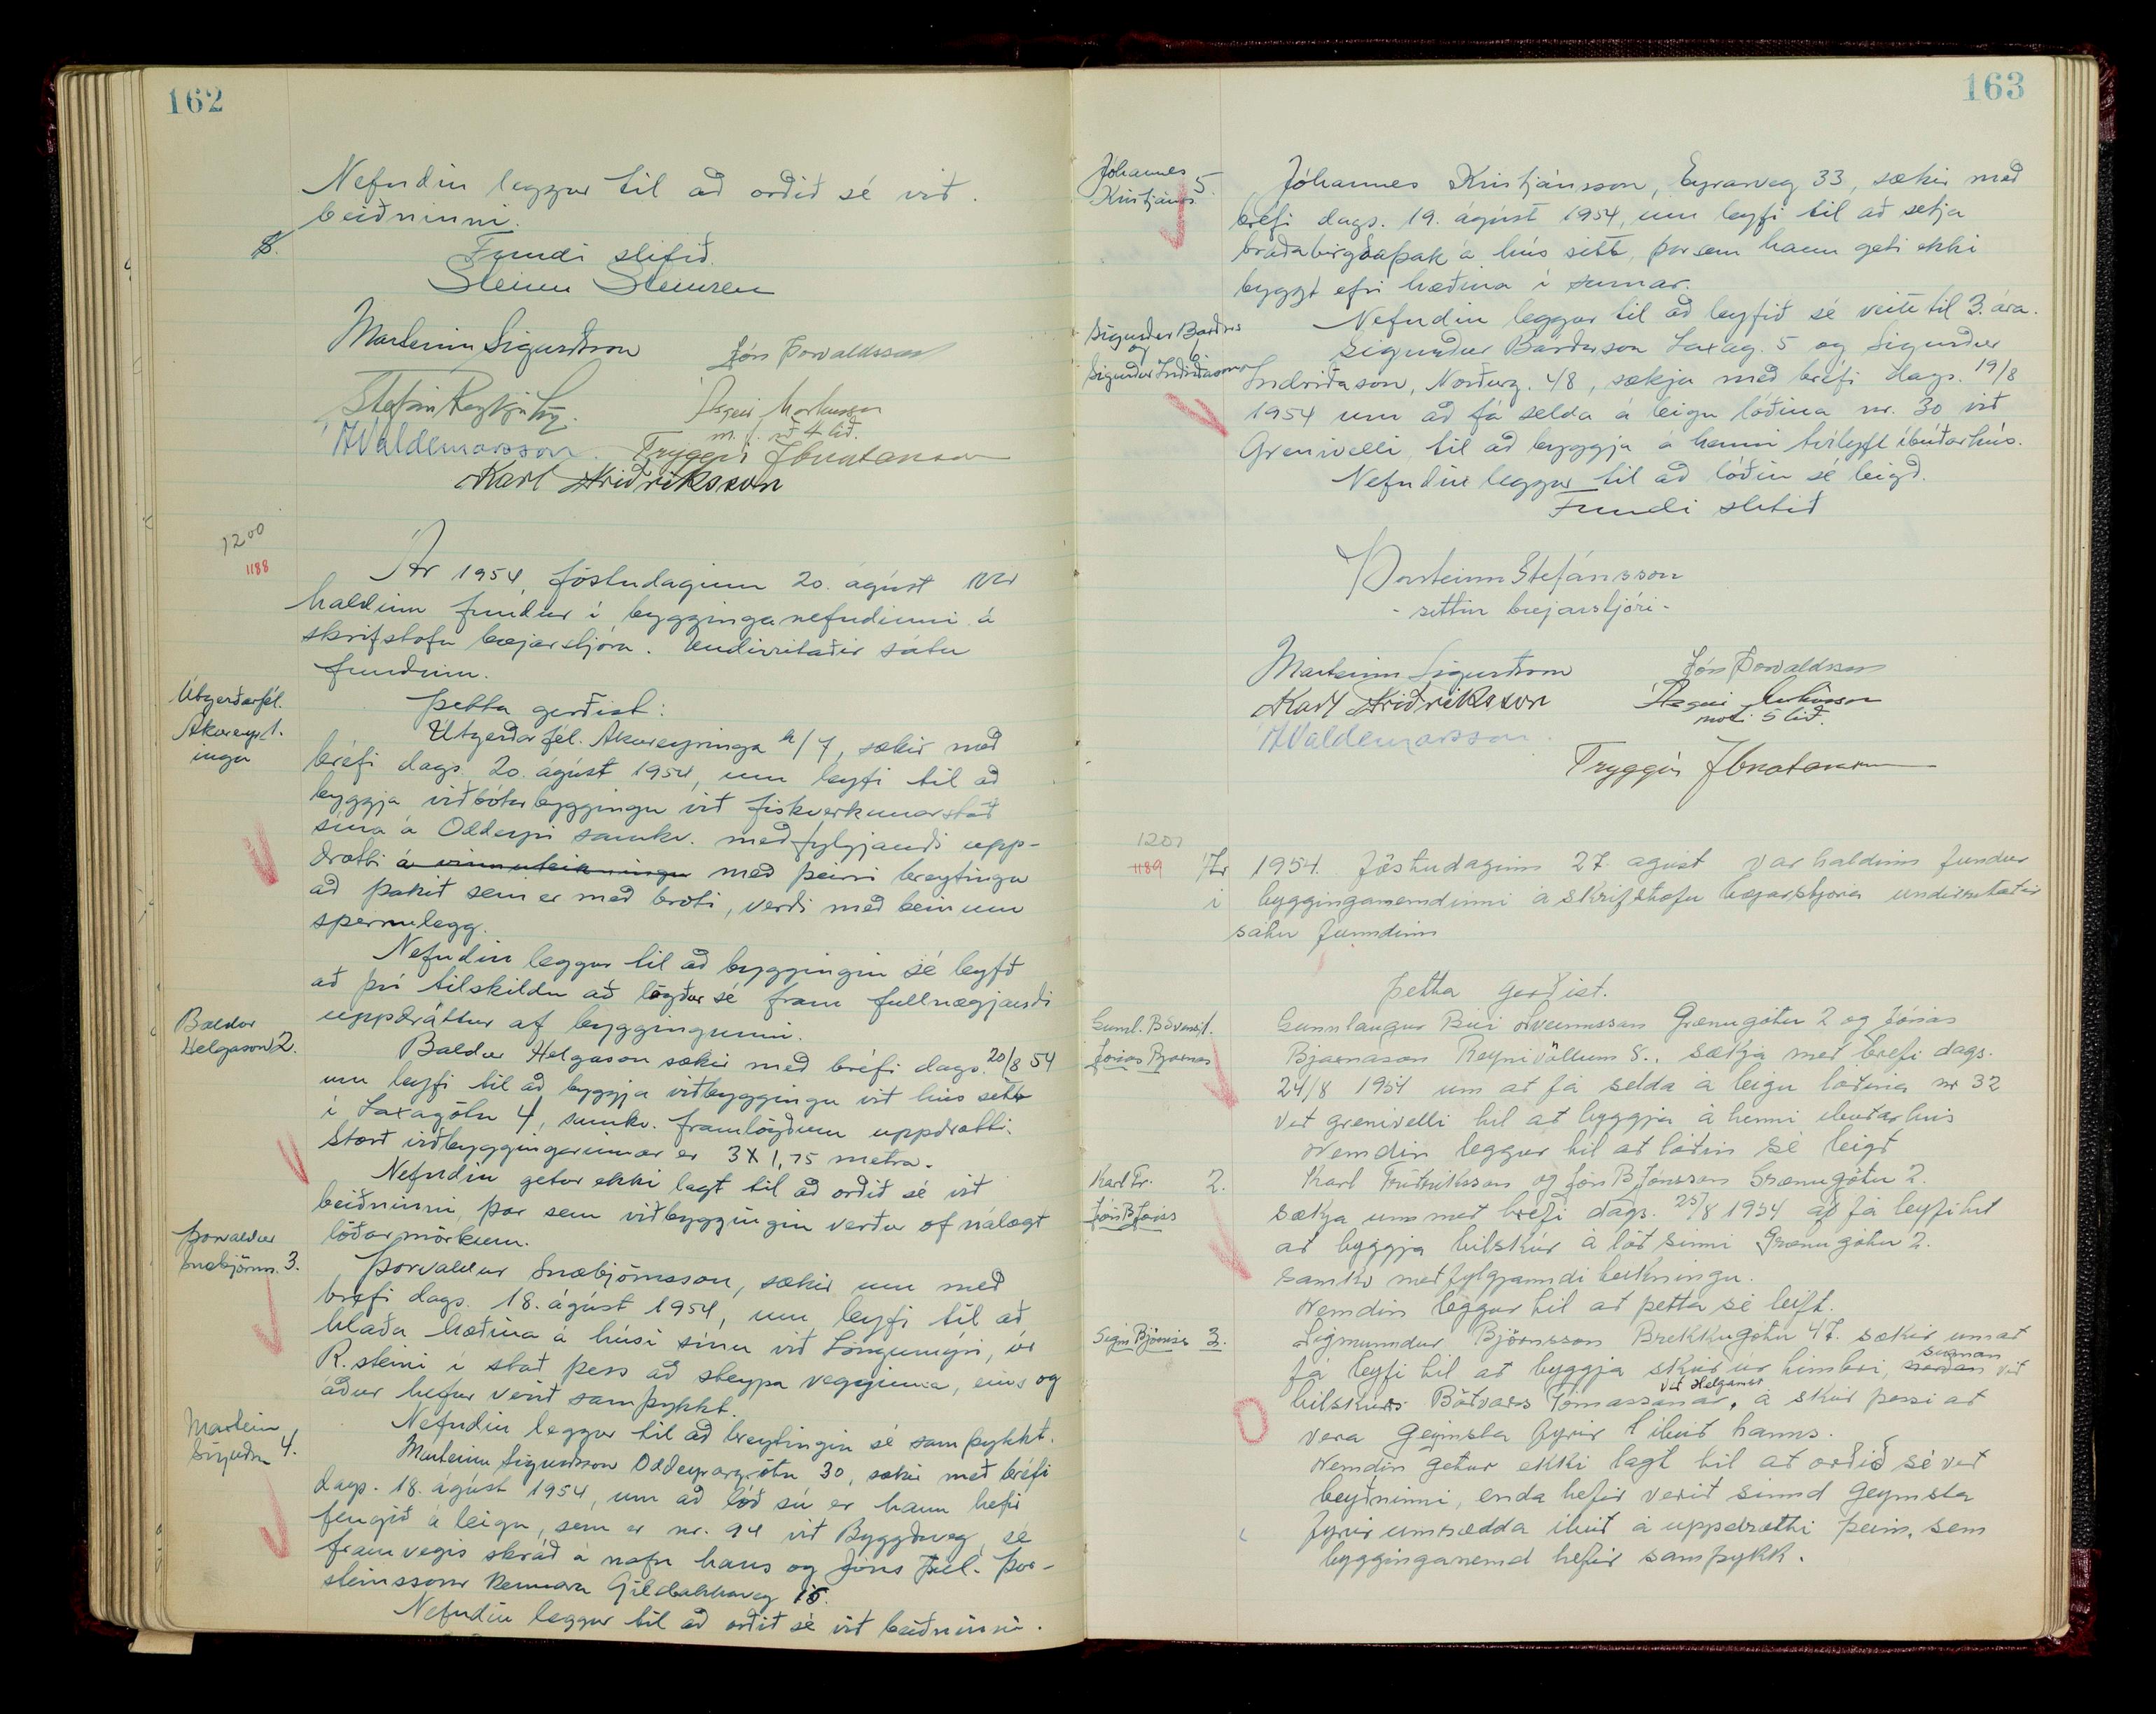 162
Nefndin leggur til að orðið sé við
beiðninni.
Fundi slitið.
Steinn Steinsen
Marteinn Sigurðsson
Jón Þorvaldsson
Stefán Reykjalín
Ásgeir Markússon
m. f. við 4 lið.
Tryggvi Jónatansson
Karl Friðriksson
1200
1188
Ár 1954, föstudaginn 20. ágúst var
haldinn fundur í bygginganefndinni á
skrifstofu bæjarstjóra. Undirritaðir sátu
fundinn.
Þetta gerðist:
Útgerðarfél.
Akureyr 1.
inga
Útgerðarfél. Akureyringa h/f, sækir með
bréfi dags. 20. ágúst 1954, um leyfi til að
byggja viðbótarbyggingu við fiskverkunarstöð
sína á Oddeyri samkv. meðfylgjandi upp-
drætti á vinnuteikningu með þeirri breytingu
að þakið sem er með broti, verði með beinum
sperrulegg.
Nefndin leggur til að byggingin sé leyfð
að því tilskildu að lagður sé fram fullnægjandi
uppdráttur af byggingunni.
Baldur
Helgason 2.
Baldur Helgason sækir með bréfi dags. 20/8 54
um leyfi til að byggja viðbyggingu við hús sitt
í Laxagötu 4, samkv. framlögðum uppdrætti.
Stærð viðbyggingarinnar er 3 X 1,75 metra.
Nefndin getur ekki lagt til að orðið sé við
beiðninni, þar sem viðbyggingin verður of nálægt
lóðarmörkum.
Þorvaldur
Snæbjörns. 3.
Þorvaldur Snæbjörnsson, sækir um með
bréfi dags. 18. ágúst 1954, um leyfi til að
hlaða hæðina á húsi sínu við Löngumýri, úr
R.steini í stað þess að steypa veggina, eins og
áður hefur verið samþykkt.
Nefndin leggur til að breytingin sé samþykkt.
Martein
Sigurðs 4.
Marteinn Sigurðsson Oddeyrargötu 30, sækir með bréfi
dags. 18. ágúst 1954, um að lóð sú er hann hefir
fengið á leigu, sem er nr. 94 við Byggðaveg, sé
framvegis skráð á nafn hans og Jóns Þor-
steinssonar kennara Gilsbakkaveg
Nefndin leggur til að orðið sé við beiðninni.
163
Jóhannes
Kristjáns 5.
Jóhannes Kristjánsson, Eyrarveg 33, sækir með
bréfi dags. 19. ágúst 1954, um leyfi til að setja
bráðabirgðaþak á hús sitt, þar sem hann geti ekki
byggt efri hæðina í sumar.
Nefndin leggur til að leyfið sé veitt til 3. ára.
Sigurður Bárðars
og 6.
Sigurður Indriðason
Sigurður Bárðarson Laxag. 5 og Sigurður
Indriðason, Norðurg. 48, sækja með bréfi dags. 19/8
1954 um að fá selda á leigu lóðina nr. 30 við
Grenivelli, til að byggja á henni tvílyft íbúðarhús.
Nefndin leggur til að lóðin sé leigð.
Fundi slitið
Þorsteinn Stefánsson
- settur bæjarstjóri -
Marteinn Sigurðsson
Jón Þorvaldsson
Karl Friðriksson
Ásgeir Markússon
móti 5 lið.
Tryggvi Jónatansson
1201
1189
Ár 1954. Föstudaginn 27. agúst var haldinn fundur
í bygginganemdinni á skrifstofu bæjarstjora undirritaðir
sátu funndinn
Þetta gerðist.
Gunnl. B Sveins 1.
Jónas Bjarnas
Gunnlaugur Búi Sveinsson Grænugötu 2 og Jónas
Bjarnason Reynivöllum 8., sækja með brefi dags.
24/8 1954 um at fá selda á leigu lóðina nr 32
við grenivelli til at byggja á henni ibúðarhús
Nemdin leggur til at lóðin sé leigð
Karl Fr. 2.
Jón B Jóns
Karl Friðriksson og Jón B Jónsson Grænugötu 2.
sækja um með brefi dags. 25/8 1954 að fá leyfi til
at byggja bílskúr á lóð sinni Grænugötu 2.
samkv meðfylgjanndi teikningu.
Nemdin leggur til at þetta sé leift.
Sigm Björns 3.
Sigmunndur Björnsson Brekkugötu 47. sækir um at
fá leyfi til at byggja skúr úr timbri, norðan sunnan við
bilskúrs Böðvars Tomassonar, á skúr þessi at
vera geymsla fyrir íbúð hanns.
Nemdin getur ekki lagt til at orðið sé við
beyðninni, enda hefir verið sinnd geymsla
fyrir umrædda íbúð á uppdrætti þeim, sem
bygginganemd hefir samþykk.